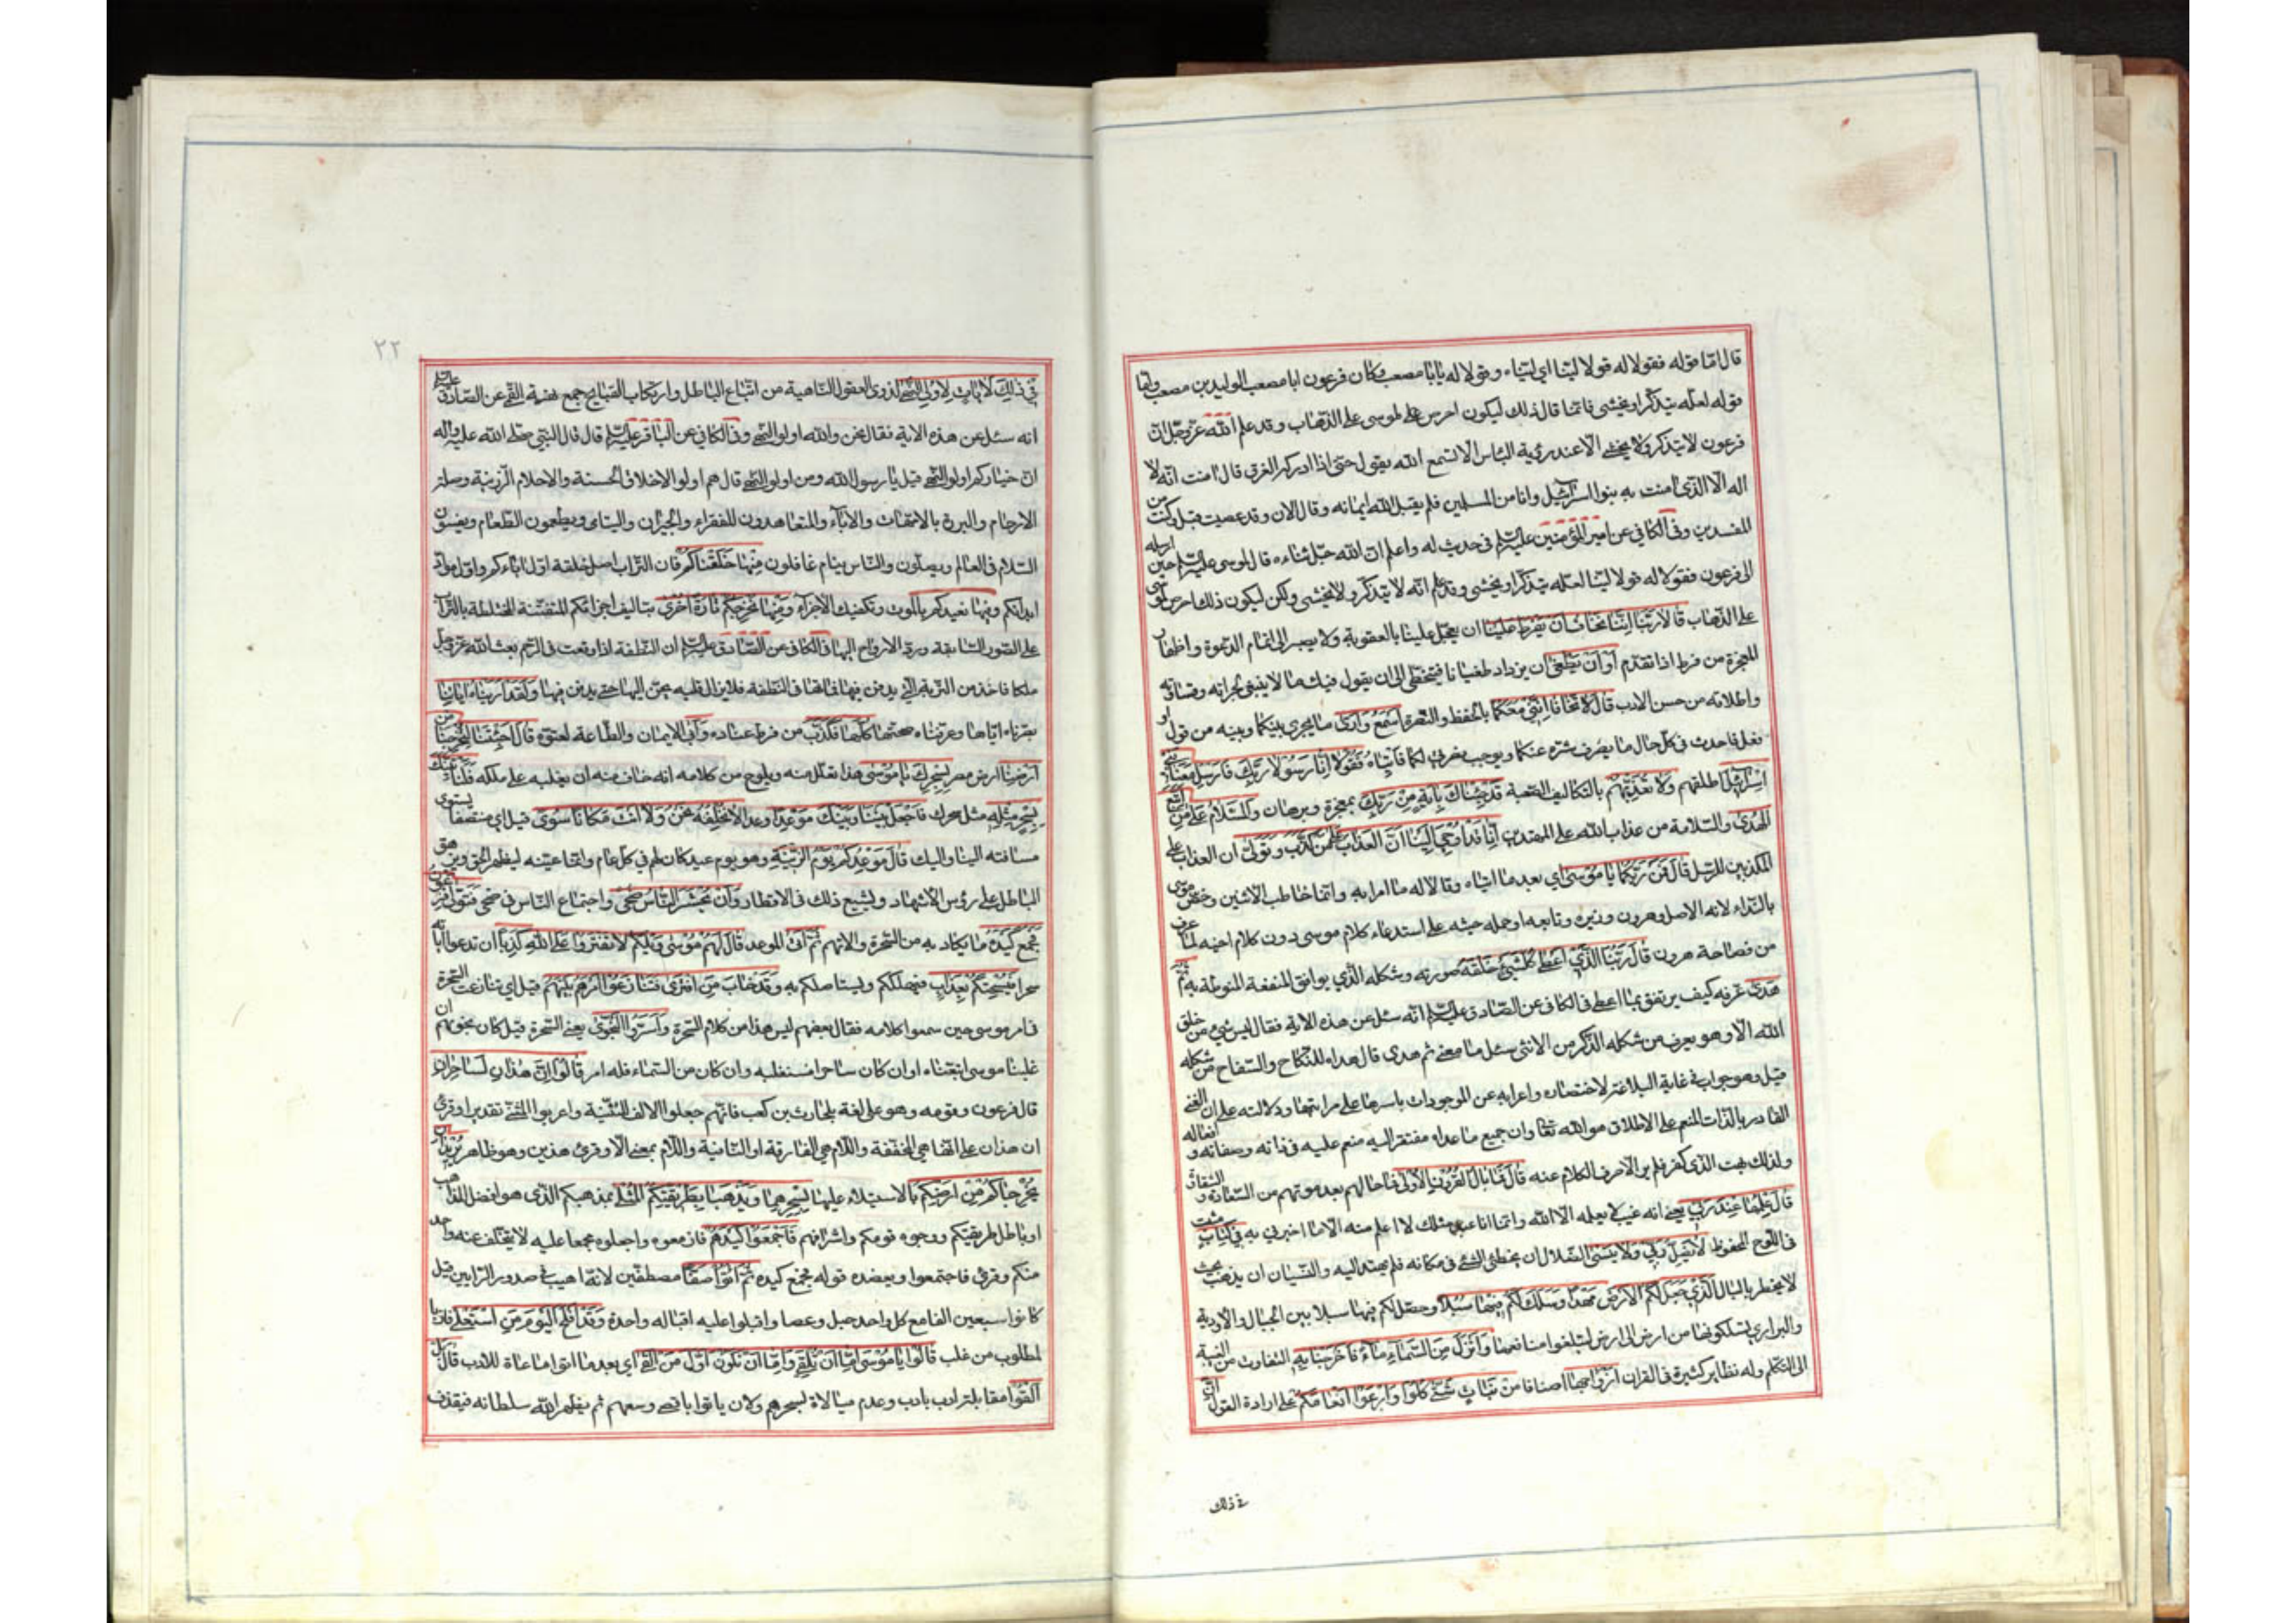 قال امّا قوله فقولا له قولا ليّنا اي ليّناه وقولا له يا ابا مصعب وكان فرعون ابا مصعب الوليد بن مصعب وامّا
قوله لعلّه يتذكّر او يخشى فانّما قال ذلك ليكون احرص على لموسى على الذهاب وقد علم الله عزّ وجلّ انّ
فرعون لا يتذكر ولا يخشى الّا عند رؤية البأس الا تسمع الله يقول حتى اذا ادركه الغرق قال امنت انّه لا
اله الّا الذي امنت به بنوا اسرائيل وانا من المسلمين فلم يقبل الله ايمانه وقال الان وقد عصيت قبل وكنت من
المفسدين وفي الكافي عن امير المؤمنين عليه السّلم في حديث له واعلم انّ الله جلّ ثناءه قال لموسى عليه السّلم حين ارسله
الى فرعون فقولا له قولا ليّنا لعلّه يتذكّر او يخشى وقد علم انّه لا يتذكّر ولا يخشى ولكن ليكون ذلك احرص لموسى
على الذّهاب قالا ربّنا انّنا نخاف ان يفرط علينا ان يعجّل علينا بالعقوبة ولا يصبر الى اتمام الدّعوة واظهار
المعجزة من فرط اذا تقدّم او ان يطغى ان يزداد طغيانا فيتخطّى الى ان يقول فيك ما لا ينبغي لجرأته وقساوته
واطلاقه من حسن الادب قال لا تخافا انّني معكما بالحفظ والنّصرة اسمع وارى ما يجري بينكما وبينه من قول او
فعل فاحدث في كلّ حال ما يصرف شرّه عنكما ويوجب نصرتي لكما فأتياه فقولا انّا رسولا ربّك فارسل معنا بني
اسرائيل اطلقهم ولا تعذّبهم بالتكاليف الصّعبة قد جئناك بآية من ربّك بمعجزة وبرهان والسّلام على من اتّبع
الهدى والسّلامة من عذاب الله على المهتدين انّا قد اوحي الينا انّ العذاب على من كذّب وتولّى ان العذاب على
المكذبين للرّسل قال فمن ربّكما يا موسى اي بعد ما اتياه وقالا له ما امرا به وانّما خاطب الاثنين وخصّ موسى
بالنّداء لانه الاصل وهرون وزيره وتابعه او حمله خبثه على استدعاء كلام موسى دون كلام اخيه لما عرف
من فصاحة هرون قال ربّنا الّذي اعطى كلّ شيئ خلقه صورته وشكله الّذي يوافق المنفعة المنوطة به ثمّ
هدى عرّفه كيف يرتفق بما اعطي في الكافي عن الصّادق عليه السّلم انّه سئل عن هذه الاية فقال ليس شيئ من خلق
الله الّا وهو يعرف من شكله الذّكر من الانثى سئل ما معنى ثم هدى قال هداه للنّكاح والسّفاح من شكله
قيل وهو جواب في غاية البلاغة لاختصاره واعرابه عن الموجودات باسرها على مراتبها ودلالته على ان الغني
القادر بالذّات المنعم على الاطلاق هو الله تعالى وان جميع ما عداه مفتقر اليه منعم عليه في ذاته وصفاته وافعاله
ولذلك بهت الذي كفر فلم ير الّا صرف الكلام عنه قال فما بال القرون الاولى فما حالهم بعد موتهم من السّعادة والشقاوة
قال علمها عند ربّي يعني انه غيب لا يعلمه الا الله وانّما انا عبد مثلك لا اعلم منه الّا ما اخبرني به في كتاب مثبت
في اللّوح المحفوظ لا يضلّ ربّي ولا ينسى الضّلال ان يخطئ الشّئ في مكانه فلم يهتد اليه والنّسيان ان يذهب بحيث
لا يخطر بالبال الّذي جعل لكم الارض مهدا وسلك لكم فيها سبلا وحصّل لكم فيها سبلا بين الجبال والاودية
والبراري تسلكونها من ارض الى ارض لتبلغوا منافعها وانزل من السّماء ماء فاخرجنا به التفاوت من الغيبة
الى التكلّم وله نظاير كثيرة في القران ازواجا اصنافا من نبات شتّى كلوا وارعوا انعامكم على ارادة القول انّ
في ذلك
٢٢
في ذلك لايات لاولي النّهى لذوى العقول النّاهية من اتّباع الباطل وارتكاب القبايح جمع نهية القمّي عن الصّادق عليه السّلم
انه سئل عن هذه الاية فقال نحن والله اولو النّهى وفي الكافي عن الباقر عليه السّلم قال قال النّبي صلّى الله عليه واله
انّ خياركم اولو النّهى قيل يا رسول الله ومن اولو النّهى قال هم اولو الاخلاق الحسنة والاحلام الرّزينة وصلة
الارحام والبررة بالامّهات والاباء والمتعاهدون للفقراء والجيران واليتامى ويطعمون الطّعام ويفشون
السّلام في العالم ويصلّون والنّاس ينام غافلون منها خلقناكم فان التّراب اصل خلقة اوّل ابائكم واوّل موادّ
ابدانكم وفيها نعيدكم بالموت وتفكيك الاجزاء ومنها نخرجكم تارة اخرى بتاليف اجزائكم المتفتّتة المختلطة بالتّراب
على الصّور السّابقة وردّ الارواح اليها في الكافي عن الصّادق عليه السّلم ان النّطفة اذا وقعت في الرّحم بعث الله عزّ وجلّ
ملكا فاخذ من التّربة الّتي يدفن فيها فماثها في النّطفة فلا يزال قلبه يحنّ اليها حتى يدفن فيها ولقد اريناه اياتنا
بصّرناه ايّاها وعرّفناه صحّتها كلّها فكذّب من فرط عناده وابى الايمان والطّاعة لعتوّه قال اجئتنا لتخرجنا من
ارضنا ارض مصر بسحرك يا موسى هذا تعلّل منه ويلوح من كلامه انه خاف منه ان يغلبه على ملكه فلناتينّك
بسحر مثله مثل سحرك فاجعل بيننا وبينك موعدا وعدا لا نخلفه نحن ولا انت مكانا سوى قيل اي منتصفا يستوي
مسافته الينا واليك قال موعدكم يوم الزّينة وهو يوم عيد كان لهم في كلّ عام وانّما عيّنه ليظهر الحق ويزهق
الباطل على رؤس الاشهاد ويشيع ذلك في الاقطار وان يحشر النّاس ضحى واجتماع النّاس في ضحى فتولّى فرعون
فجمع كيده ما يكاد به من السّحرة والاتهم ثمّ اتى الموعد قال لهم موسى ويلكم لا تفتروا على الله كذبا ان تدعوا اياته
سحرا فيسحتكم بعذاب فيهلككم ويستاصلكم به وقد خاب من افترى فتنازعوا امرهم بينهم قيل اي تنازعت السّحرة
في امر موسى حين سمعوا كلامه فقال بعضهم ليس هذا من كلام السّحرة واسرّوا النّجوى يعني السّحرة قيل كان نجويهم ان
غلبنا موسى اتّبعناه او ان كان ساحرا فسنغلبه وان كان من السّماء فله امر قالوا انّ هذان لساحران
قال فرعون وقومه وهو على لغة بلحارث بن كعب فانّهم جعلوا الالف للتّثنية واعربوا المثنّى تقديرا وقرئ
ان هذان على انّها هي المخفّفة واللّام هي الفارقة او النّافية واللّام بمعنى الّا وقرئ هذين وهو ظاهر يريدان
يخرجاكم من ارضكم بالاستيلاء عليها بسحرهما ويذهبا بطريقتكم المثلى بمذهبكم الّذي هو افضل المذاهب
او باطل طريقتكم ووجوه قومكم واشرافهم فاجمعوا كيدكم فازمعوه واجعلوه مجمعا عليه لا يتخلّف عنه واحد
منكم وقرئ فاجتمعوا ويعضده قوله فجمع كيده ثمّ ائتوا صفّا مصطفّين لانّه اهيب في صدور الرّائين قيل
كانوا سبعين الفا مع كل واحد حبل وعصا واقبلوا عليه اقباله واحدة وقد افلح اليوم من استعلى فاز با
لمطلوب من غلب قالوا يا موسى امّا ان تلقي وامّا ان نكون اوّل من القى اي بعد ما اتوا مراعاة للادب قال بل
القوا مقابلة ادب بادب وعدم مبالاة بسحرهم ولان ياتوا باقصى وسعهم ثم يظهر الله سلطانه فيقذف